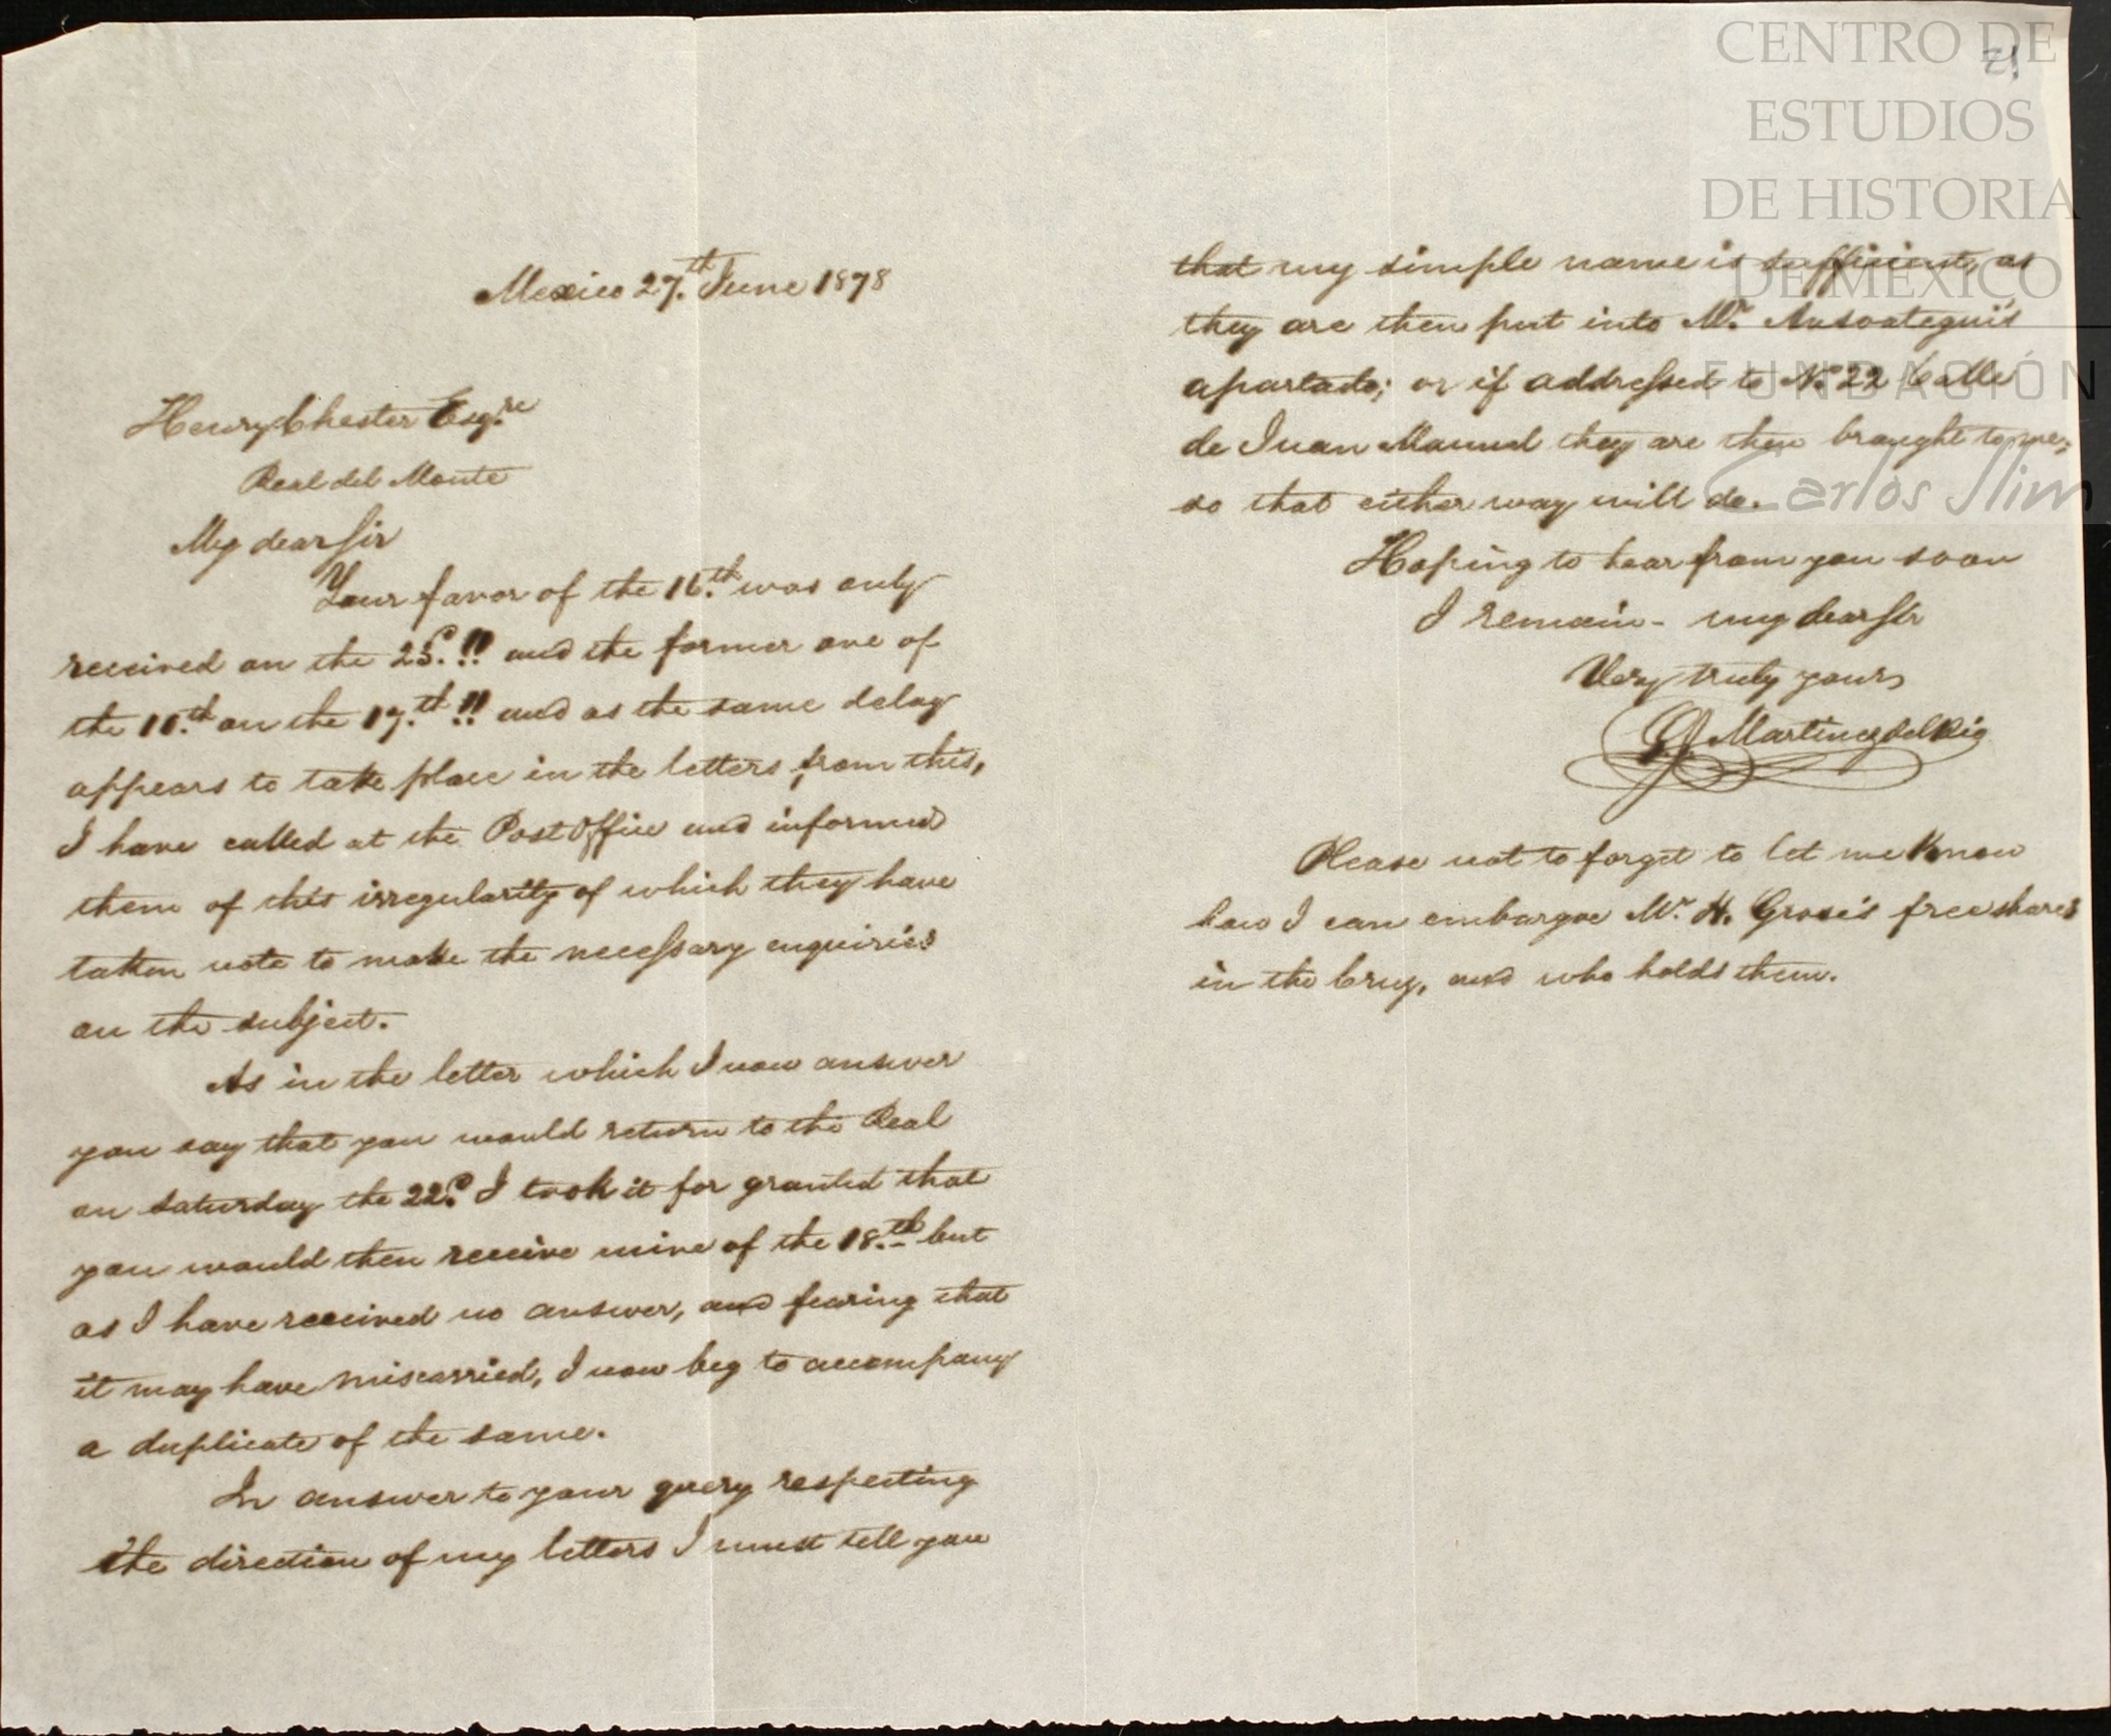 Mexico 27.th June 1878
Henry Chester Esq.re
Real del Monte
My dear Sir
Your favor of the 16.th was only
received on the 25.!! and the former one of
the 11.th on the 17.th !! and as the same delay
appears to take place in the letters from this,
I have called at the Post Office and informed
them of this irregularity of which they have
taken note to make the necessary enquiries
on the subject.
As in the letter which I now answer
you say that you would return to the Real
on saturday the 22.d I took it for granted that
you would then receive mine of the 18.th but
as I have received no answer, and fearing that
it may have miscarried, I now beg to accompany
a duplicate of the same.
In answer to your query respecting
the direction of my letters I must tell you
21
that my simple name is sufficient, as
they are then put into Mr. Ansoategui's
apartado; or if addressed to No. 22 Calle
de Juan Manuel they are then brought to me;
so that either way will do.
Hoping to hear from you soon
I remain - my dear Sir
Very truly yours
Martinez del Rio
Please not to forget to let me know
how I can embargoe Mr. H. Grose's free shares
in the Cruz, and who holds them.
CENTRO DE
ESTUDIOS
DE HISTORIA
DE MEXICO
FUNDACIÓN
Carlos Slim